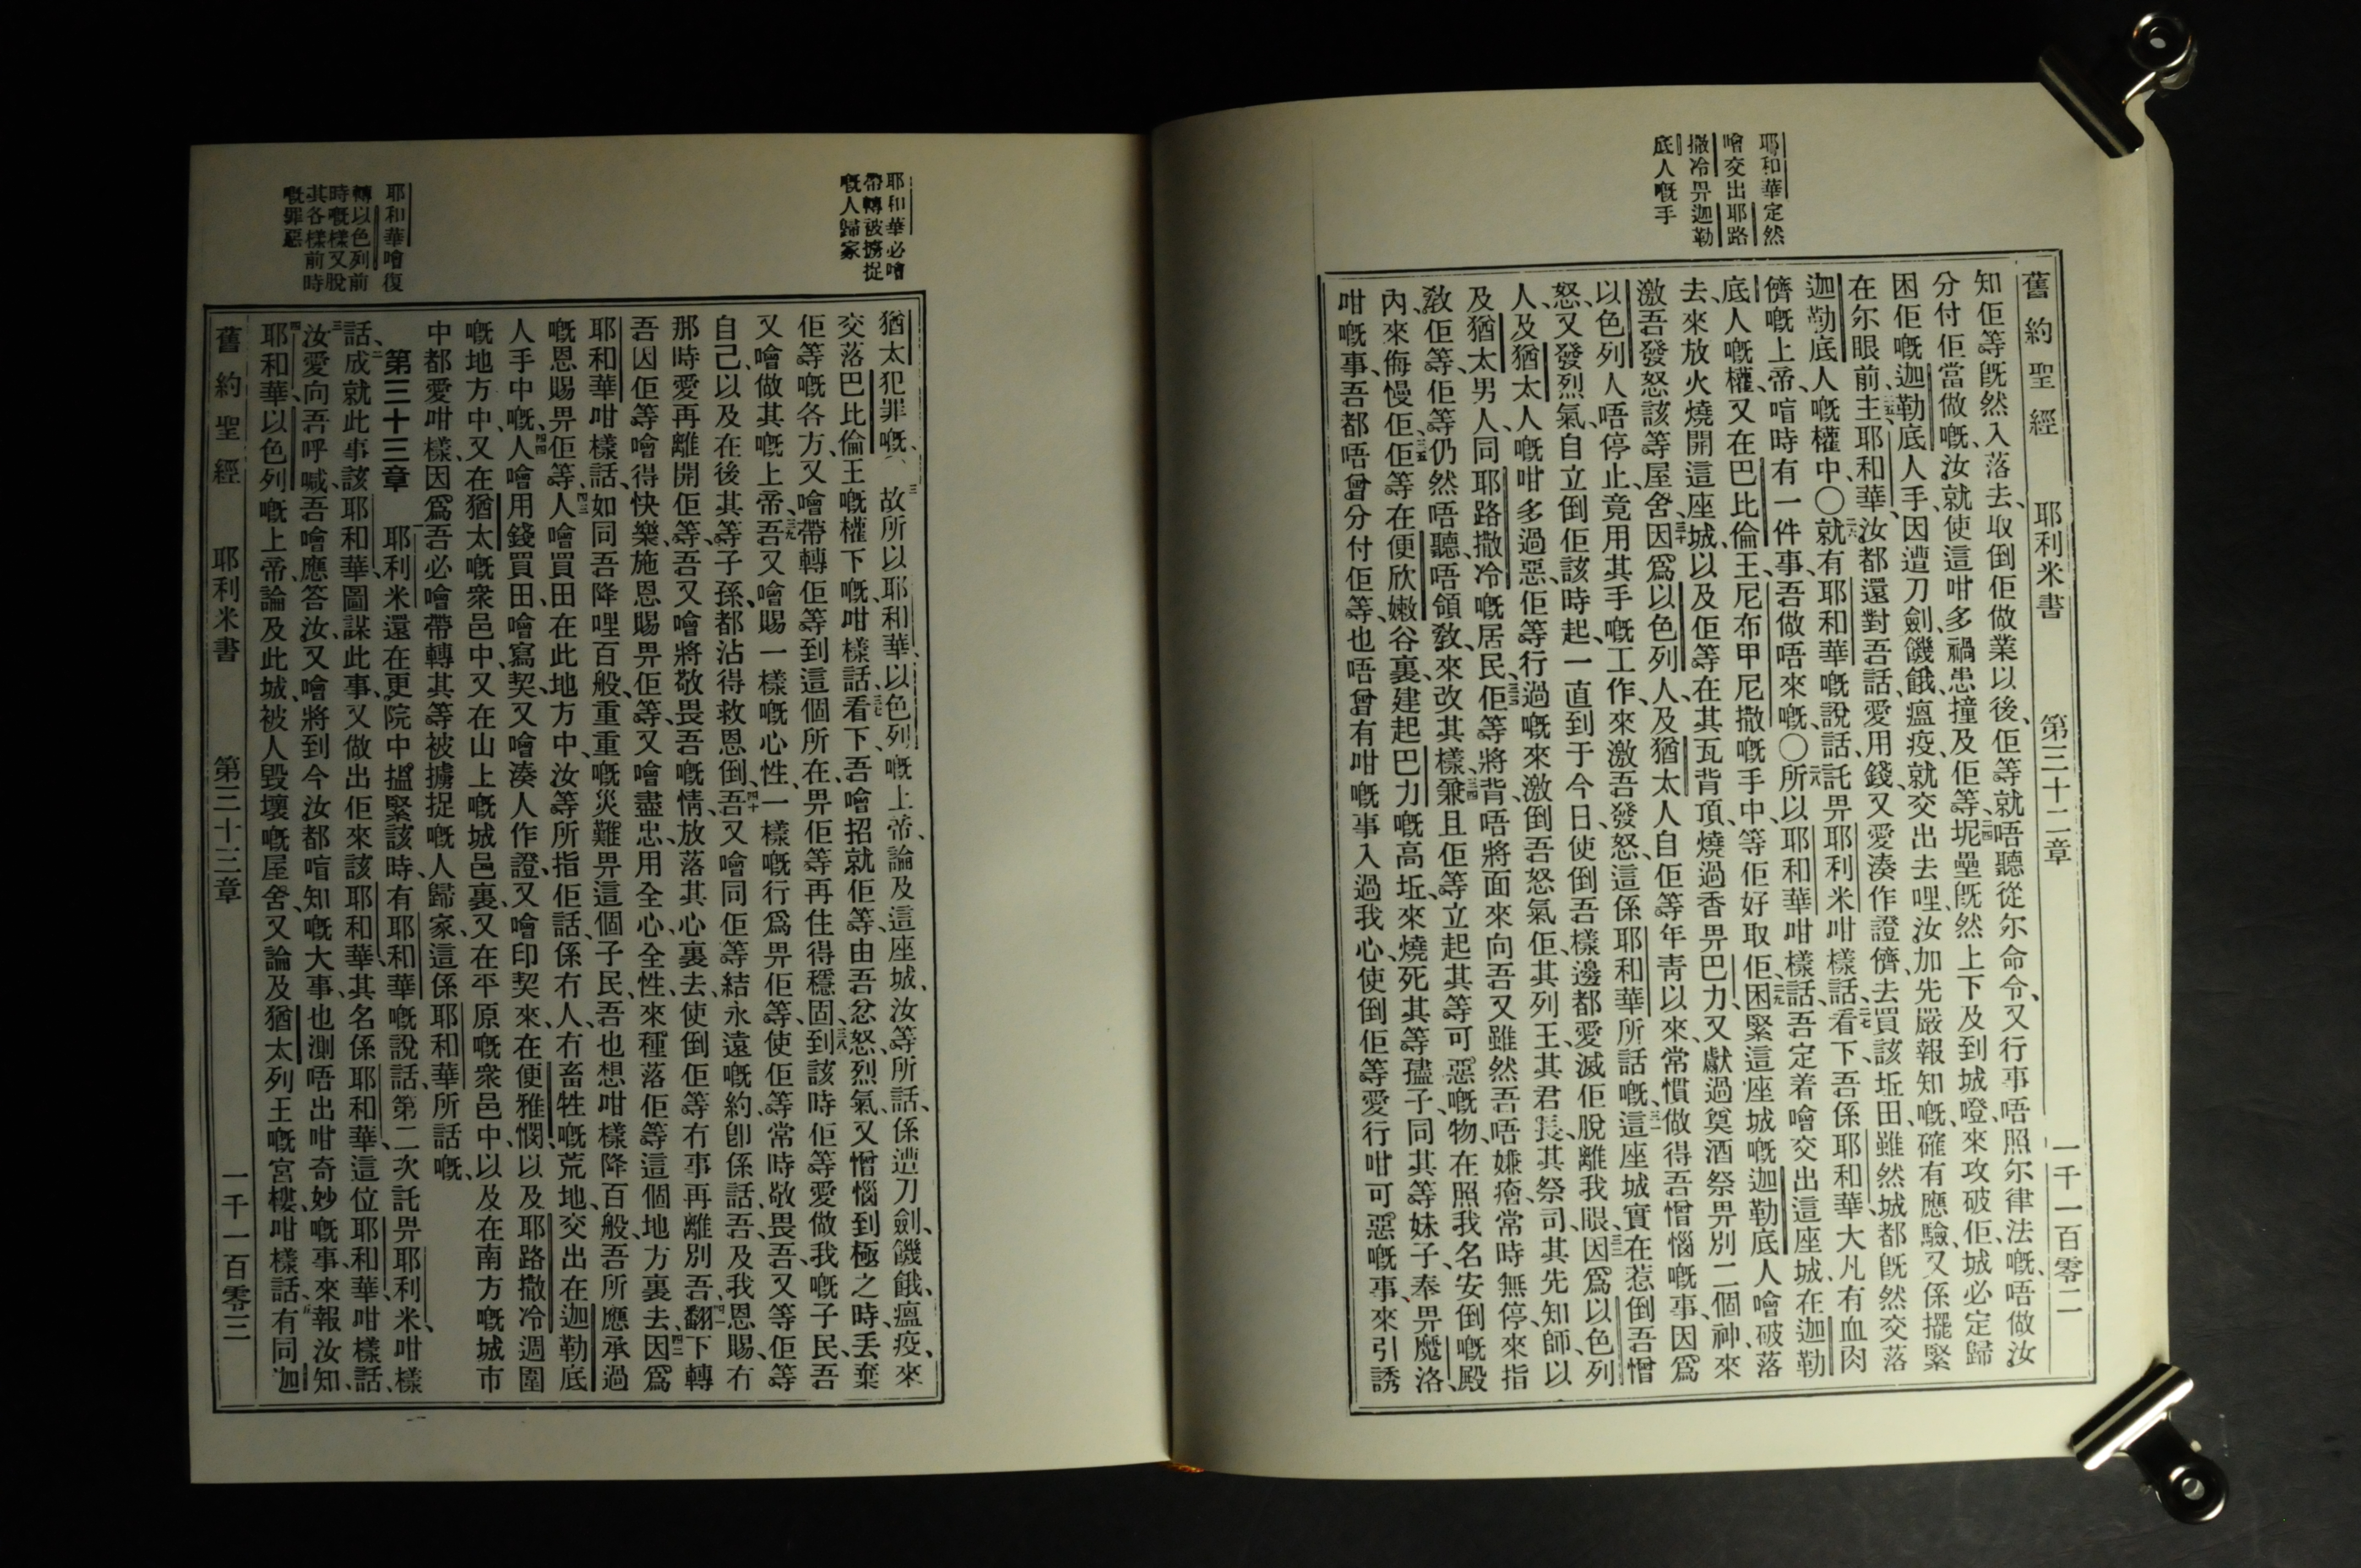 耶和華定然
噲交出耶路
撒冷畀迦勒
底人嘅手
舊約聖經　耶利米書　第三十二章　一千一百零二
知佢等既然入落去、取倒佢做業以後、佢等就唔聽從尔命令、又行事唔照尔律法嘅、唔做汝
分付佢當做嘅、汝就使這咁多禍患撞及佢等、坭壘既然上下及到城嶝來攻破佢、城必定歸
困佢嘅迦勒底人手、因遭刀劍、饑餓、瘟疫、就交出去哩、汝加先嚴報知嘅、確有應驗、又係擺緊
在尔眼前、主耶和華、汝都還對吾話、愛用錢、又愛湊作證儕、去買該坵田、雖然城都既然交落
迦勒底人嘅權中、〇就有耶和華嘅說話、託畀耶利米咁樣話、看下、吾係耶和華、大凡有血肉
儕嘅上帝、喑時有一件事、吾做唔來嘅、〇所以耶和華咁樣話、吾定着噲交出這座城、在迦勒
底人嘅權、又在巴比倫王、尼布甲尼撒嘅手中、等佢好取佢、困緊這座城嘅迦勒底人噲破落
去、來放火燒開這座城、以及佢等在其瓦背頂、燒過香畀巴力、又獻過奠酒祭畀別二個神、來
激吾發怒該等屋舍、因爲以色列人、及猶太人自佢等年青以來、常慣做得吾憎惱嘅事、因爲
以色列人唔停止、竟用其手嘅工作、來激吾發怒、這係耶和華所話嘅、這座城實在惹倒吾憎
怒、又發烈氣、自立倒佢該時起、一直到于今日、使倒吾樣邊都愛滅佢脫離我眼、因爲以色列
人、及猶太人嘅咁多過惡、佢等行過嘅來激倒吾怒氣、佢其列王、其君長、其祭司、其先知師、以
及猶太男人、同耶路撒冷嘅居民、佢等將背、唔將面來向吾、又雖然吾唔嫌瘡、常時無停、來指
敎佢等、佢等仍然唔聽、唔領敎、來改其樣、兼且佢等立起其等可惡嘅物、在照我名安倒嘅殿
內、來侮慢佢、佢等在便欣嫩谷裏、建起巴力嘅高坵、來燒死其等孻子、同其等妹子、奉畀魔洛、
咁嘅事、吾都唔曾分付佢等、也唔曾有咁嘅事入過我心、使倒佢等愛行咁可惡嘅事、來引誘
耶和華必噲
帶轉被擄捉
嘅人歸家
耶和華噲復
轉以色列前
時嘅樣又脫
其各樣前時
嘅罪惡
猶太犯罪嘅、故所以耶和華、以色列嘅上帝、論及這座城、汝等所話、係遭刀劍、饑餓、瘟疫、來
交落巴比倫王嘅權下嘅、咁樣話、看下、吾噲招就佢等、由吾忿怒、烈氣、又憎惱到極之時、丟棄
佢等嘅各方、又噲帶轉佢等到這個所在、畀佢等再住得穩固、到該時佢等愛做我嘅子民、吾
又噲做其嘅上帝、吾又噲賜一樣嘅心性、一樣嘅行爲畀佢等、使佢等常時敬畏吾、又等佢等
自己、以及在後其等子孫、都沾得救恩倒、吾又噲同佢等結永遠嘅約、卽係話、吾及我恩賜、冇
那時愛再離開佢等、吾又噲將敬畏吾嘅情、放落其心裏去、使倒佢等冇事再離別吾、翻下轉
吾因佢等噲得快樂、施恩賜畀佢等、又噲盡忠、用全心全性、來種落佢等這個地方裏去、因爲
耶和華咁樣話、如同吾降哩百般、重重嘅災難畀這個子民、吾也想咁樣降百般、吾所應承過
嘅恩賜畀佢等、人噲買田在此地方中、汝等所指佢話、係冇人、冇畜牲嘅荒地、交出在迦勒底
人手中嘅、人噲用錢買田、噲寫契、又噲湊人作證、又噲印契來、在便雅憫、以及耶路撒冷週圍
嘅地方中、又在猶太嘅衆邑中、又在山上嘅城邑裏、又在平原嘅衆邑中、以及在南方嘅城市
中都愛咁樣、因爲吾必噲帶轉其等被擄捉嘅人歸家、這係耶和華所話嘅、
第三十三章　耶利米還在更院中搵緊該時、有耶和華嘅說話、第二次託畀耶利米、咁樣
話、成就此事該耶和華、圖謀此事、又做出佢來該耶和華、其名係耶和華、這位耶和華、咁樣話、
汝愛向吾呼喊、吾噲應答汝、又噲將到今汝都喑知嘅大事、也測唔出咁奇妙嘅事、來報汝知、
耶和華、以色列嘅上帝、論及此城、被人毀壞嘅屋舍、又論及猶太列王嘅宮樓、咁樣話、有同迦
舊約聖經　耶利米書　第三十三章　一千一百零三